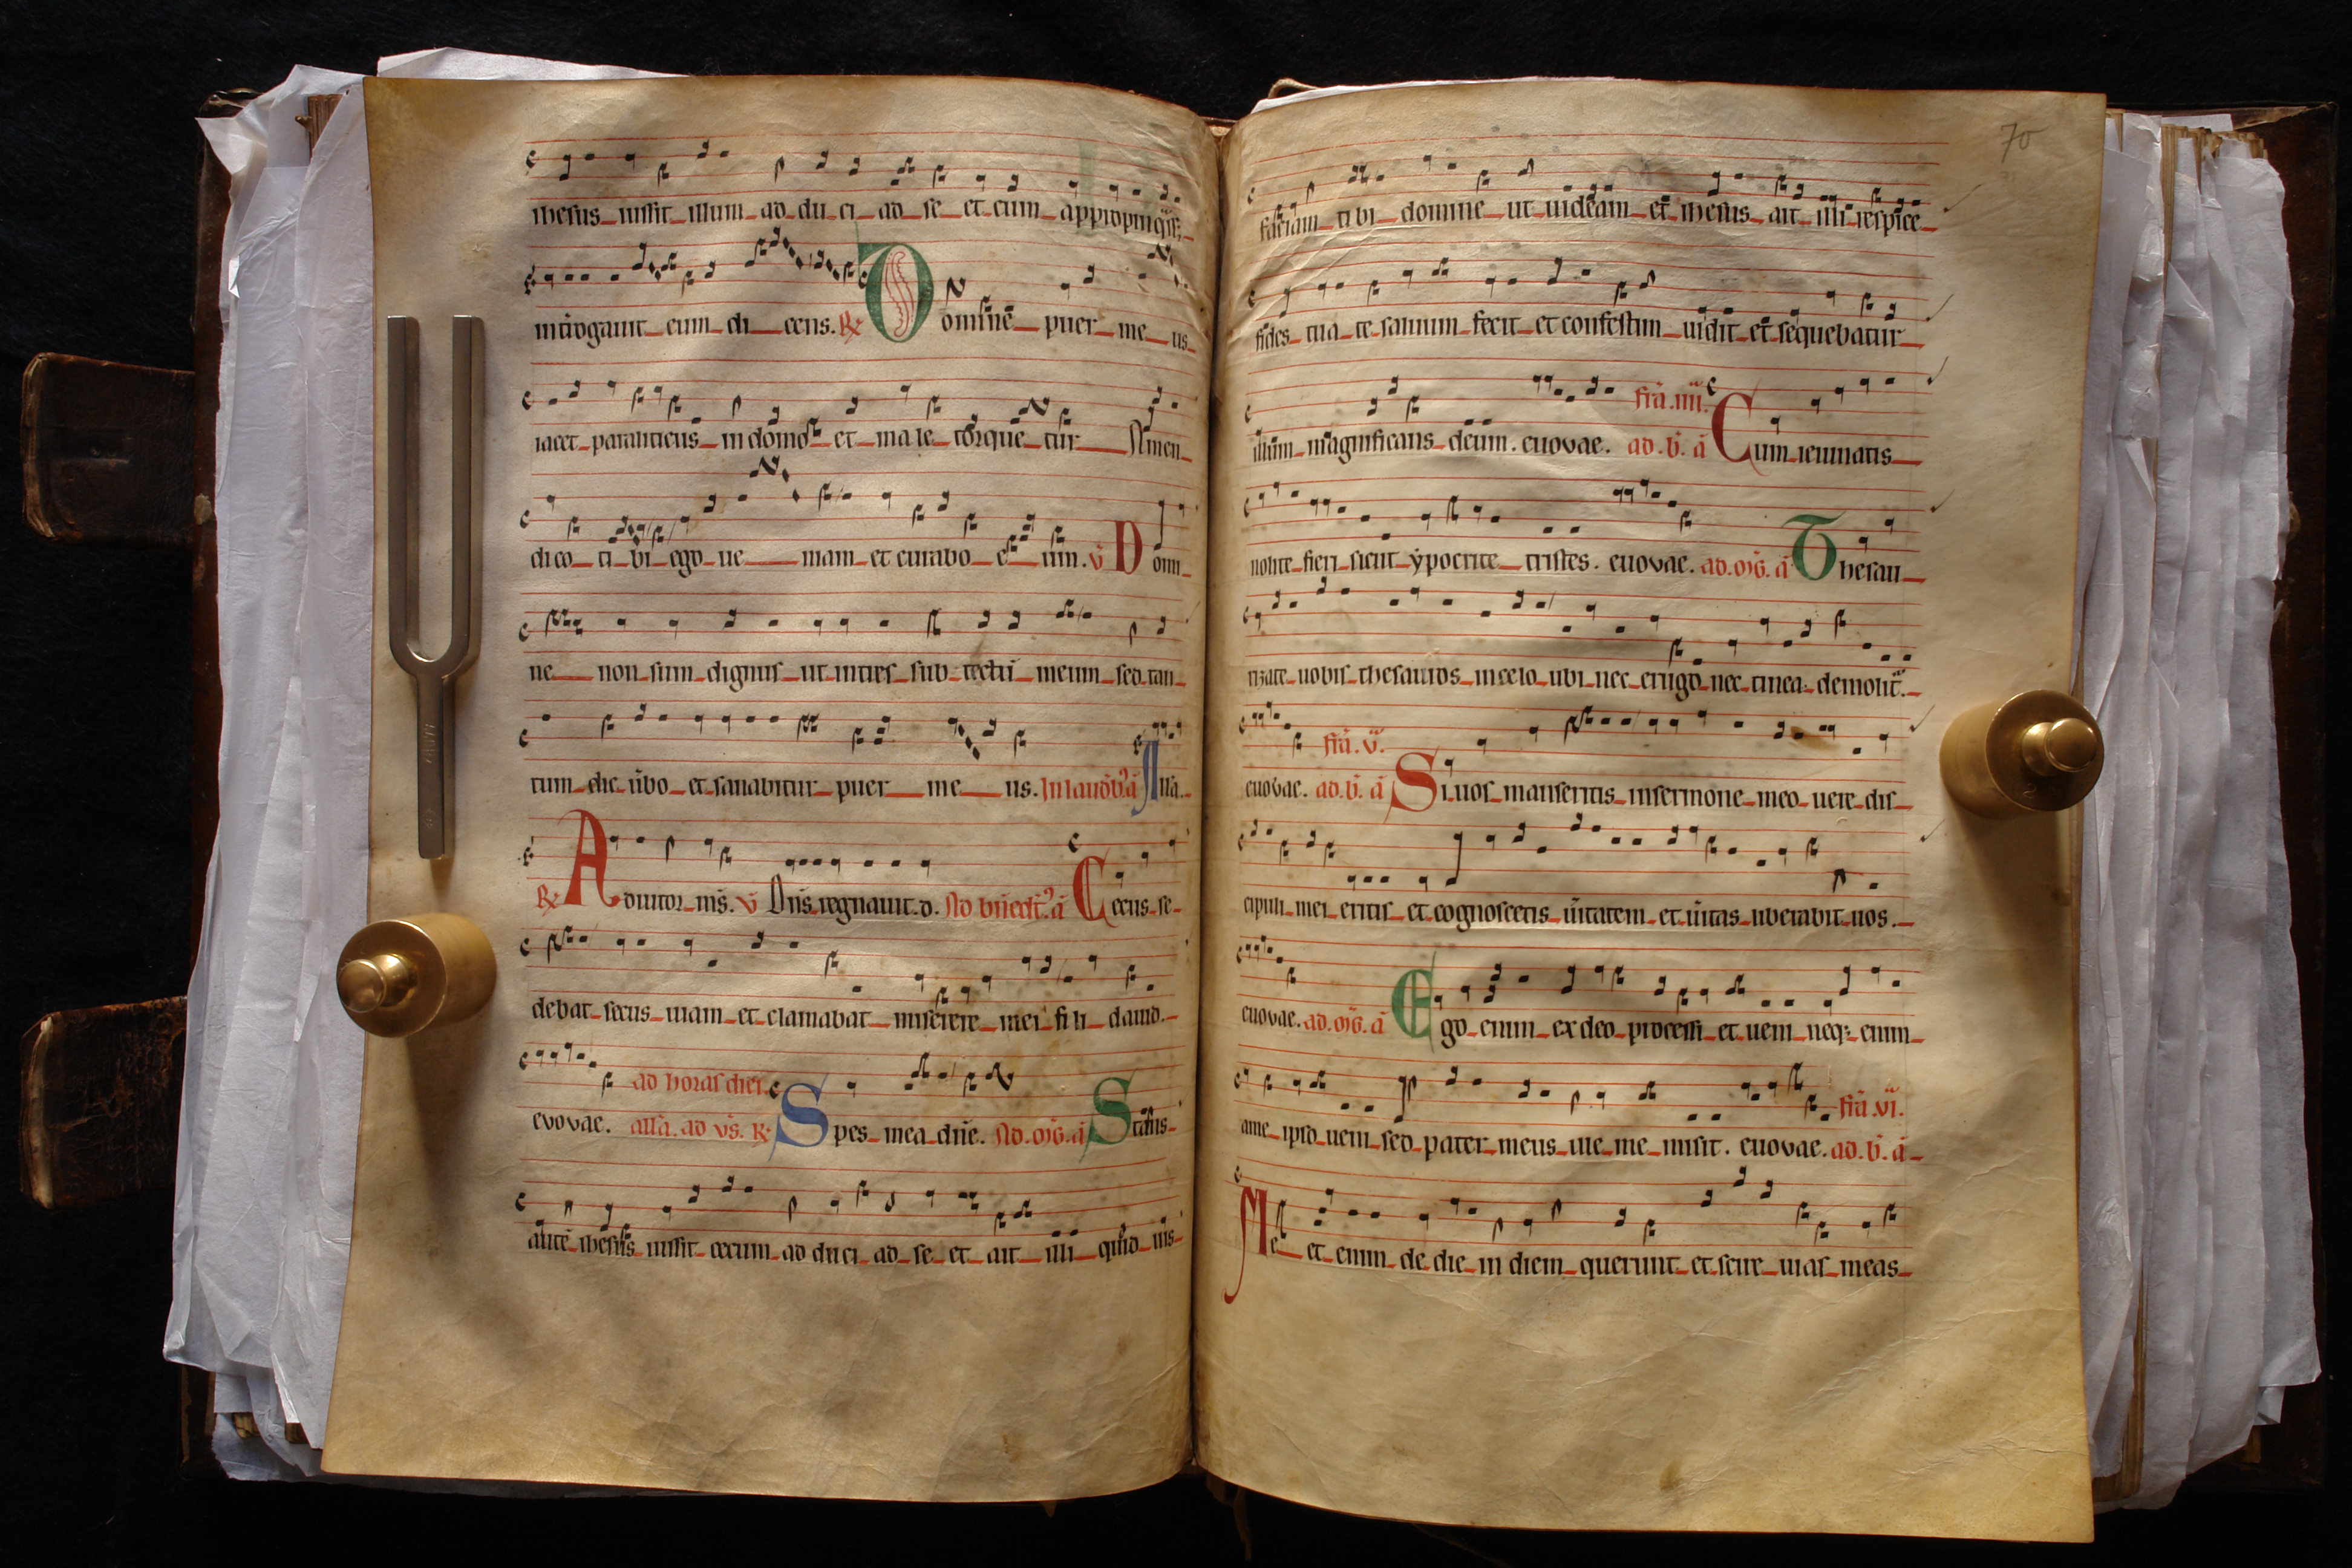 ihesus iussit illum ad du ci ad se et cum appropinq̄ss;
int̄rogauit eum di cens. R̷ Domine puer me us
iacet paraliticus in domo et ma le torque tur Amen
dico ti bi ego ue niam et curabo e um. v̄ Domi
ne non sum dignus ut intres sub tectū meum sed tan
tum dic ūbo et sanabitur puer me us. In laudib; ā Alla.
R̷ Adiutor m̄s. v̄ Dn̄s regnauit. d. Ad bn̄edict̄. ā Cecus se
debat secus uiam et clamabat miserere mei fi li dauid.
ad horas diei.
evovae. alla. ad vs̄. R̷ Spes mea dn̄e. Ad. oīg. ā Stans
autē ihesus iussit cecum ad du ci ad se et ait illi quid uis
70
faciam ti bi domine ut uideam et ihesus ait illi respice
fides tua te saluum fecit et confestim uidit et sequebatur
fr̄ia. iiii.
illum magnificans deum. euovae. ad. b̄. ā Cum ieiunatis
nolite fieri sicut ẏpocrite tristes. euovae. ad. oīg. ā Thesau
rizate uobis thesauros in celo ubi nec erugo nec tinea demolit̄.
fr̄ia. v.
euovae. ad. b̄. ā Si uos manseritis in sermone meo uere dis
cipuli mei eritis et cognoscetis ūitatem et ūitas liberabit uos.
euovae. ad. oīg. ā Ego enim ex deo processi et ueni neq; enim
fr̄ia. vi.
a me ipso ueni sed pater meus ille me misit. euovae. ad. b̄. ā
Me et enim de die in diem querunt et scire uias meas